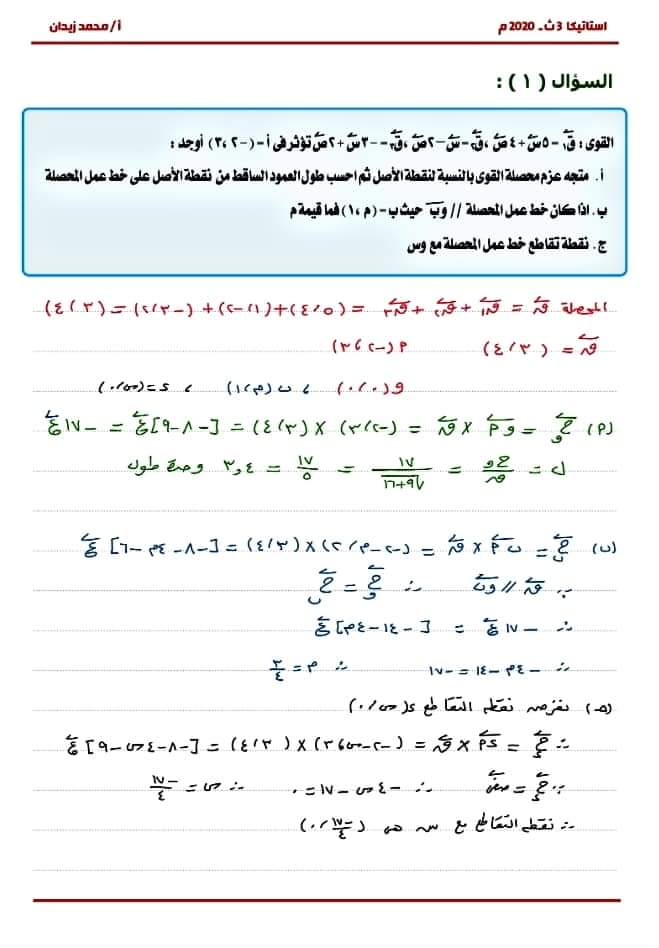 استاتيكا 3 ث. 2020 م
أ/ محمد زيدان
السؤال ( ١ ) :
القوى : ق١ = ٥ س + ٤ ص ، ق٢ = س − ٢ ص ، ق٣ = −٣ س + ٢ ص تؤثر فى أ = (−٢ ، ٣) أوجد :
أ. متجه عزم محصلة القوى بالنسبة لنقطة الأصل ثم احسب طول العمود الساقط من نقطة الأصل على خط عمل المحصلة
ب. اذا كان خط عمل المحصلة // وب حيث ب = (م ، ١) فما قيمة م
ج. نقطة تقاطع خط عمل المحصلة مع وس
المحصلة ق = ق١ + ق٢ + ق٣ = (٥ ، ٤) + (١ ، −٢) + (−٣ ، ٢) = (٣ ، ٤)
ق = (٣ ، ٤) م (−٢ ، ٣)
و (٠ ، ٠) ، ب (م ، ١) ، د = (س ، ٠)
(م) ج و = وم × ق = (−٢ ، ٣) × (٣ ، ٤) = [−٨ − ٩] ع = −١٧ ع
ل = ج و / ق = ١٧ / √(٩ + ١٦) = ١٧ / ٥ = ٣,٤ وحدة طول
(ب) ج ب = ب م × ق = (−٢ − م ، ٢) × (٣ ، ٤) = [−٨ − ٤م − ٦] ع
∵ ق // وب ∴ ج و = ج ب
∴ −١٧ ع = [−١٤ − ٤م] ع
∴ −٤م − ١٤ = −١٧ ∴ م = ٣ / ٤
(ج) بفرض نقطة التقاطع د (س ، ٠)
∴ ج د = د م × ق = (−٢ − س ، ٣) × (٣ ، ٤) = [−٨ − ٤س − ٩] ع
∵ ج د = صفر ∴ −٤س − ١٧ = ٠ ∴ س = −١٧ / ٤
∴ نقطة التقاطع مع س هى (−١٧ / ٤ ، ٠)